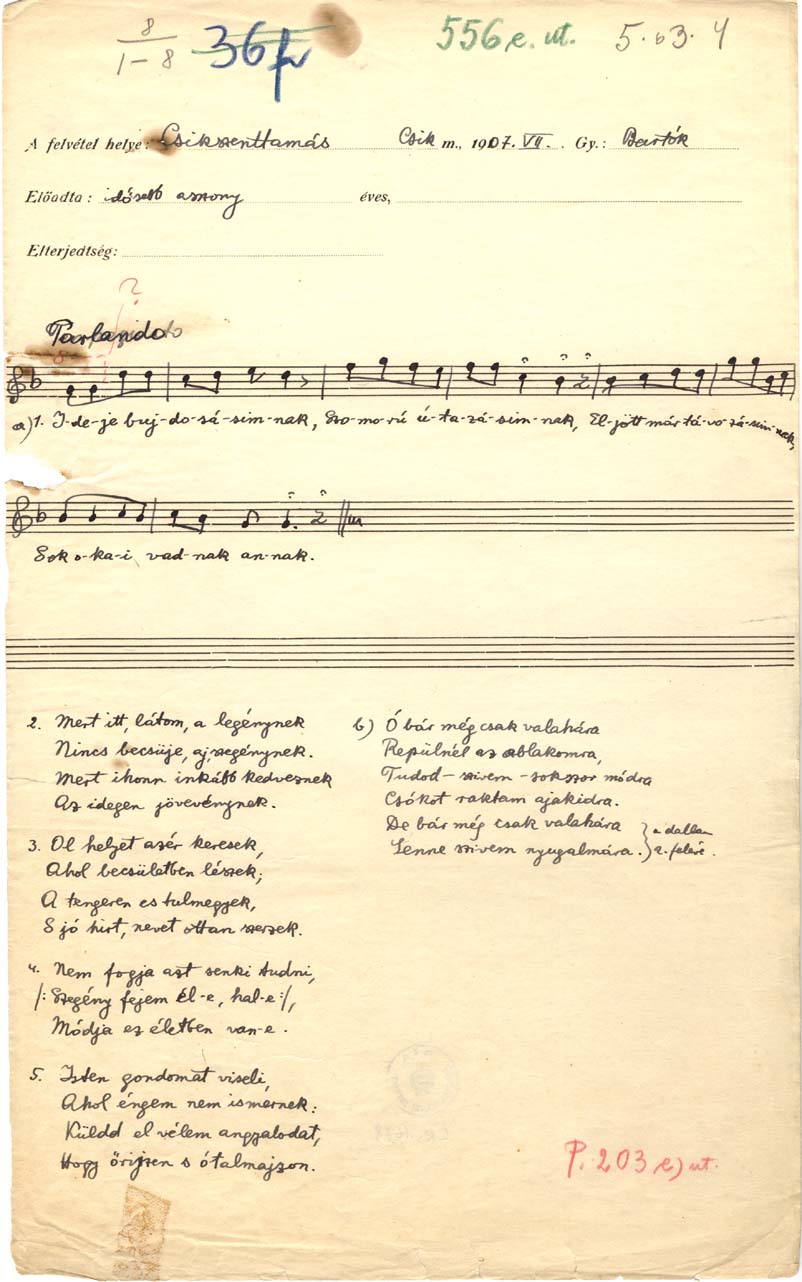 8
1-8
36
556 e. ut.
5.03.4
A felvétel helye: Csikszenttamás Csik m., 1907. VII. Gy.: Bartók
Előadta: idősebb asszony éves,
Elterjedtség:
?
Parlando
8
a) 1. I-de-je buj-do-sá-sim-nak, Szo-mo-rú ú-ta-zá-sim-nak, El-jött már tá-vo-zá-sim-nak,
Sok o-ka-i vad-nak an-nak.
2. Mert itt, látom, a legénynek
Nincs becsüje, aj, szegénynek.
Mert ihonn inkább kedveznek
Az idegen jövevénynek.
3. Ol helyet azér keresek,
Ahol becsületben lészek;
A tengeren es tulmegyek,
S jó hirt, nevet ottan szerzek.
4. Nem fogja azt senki tudni,
/: Szegény fejem él-e, hal-e :/,
Módja ez életben van-e.
5. Isten gondomat viseli,
Ahol éngem nem ismernek:
Küldd el vélem angyalodat,
Hogy őrijzen s ótalmajzon.
b) Ó bár még csak valahára
Repülnél az ablakomra,
Tudod - szivem - sokszor módra
Csókot raktam ajakidra.
De bár még csak valahára } a dallam
Lenne szivem nyugalmára. } 2. felére.
P. 203 e) ut.